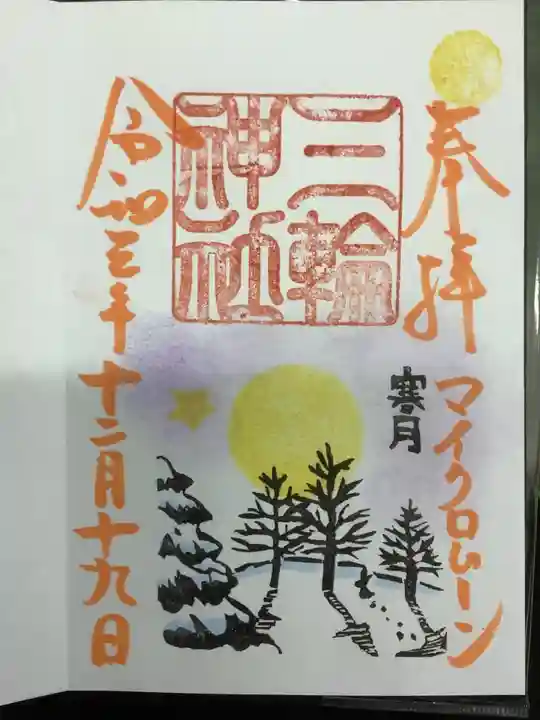 奉拝
マイクロムーン
寒月
三輪
神社
令和三年十二月十九日